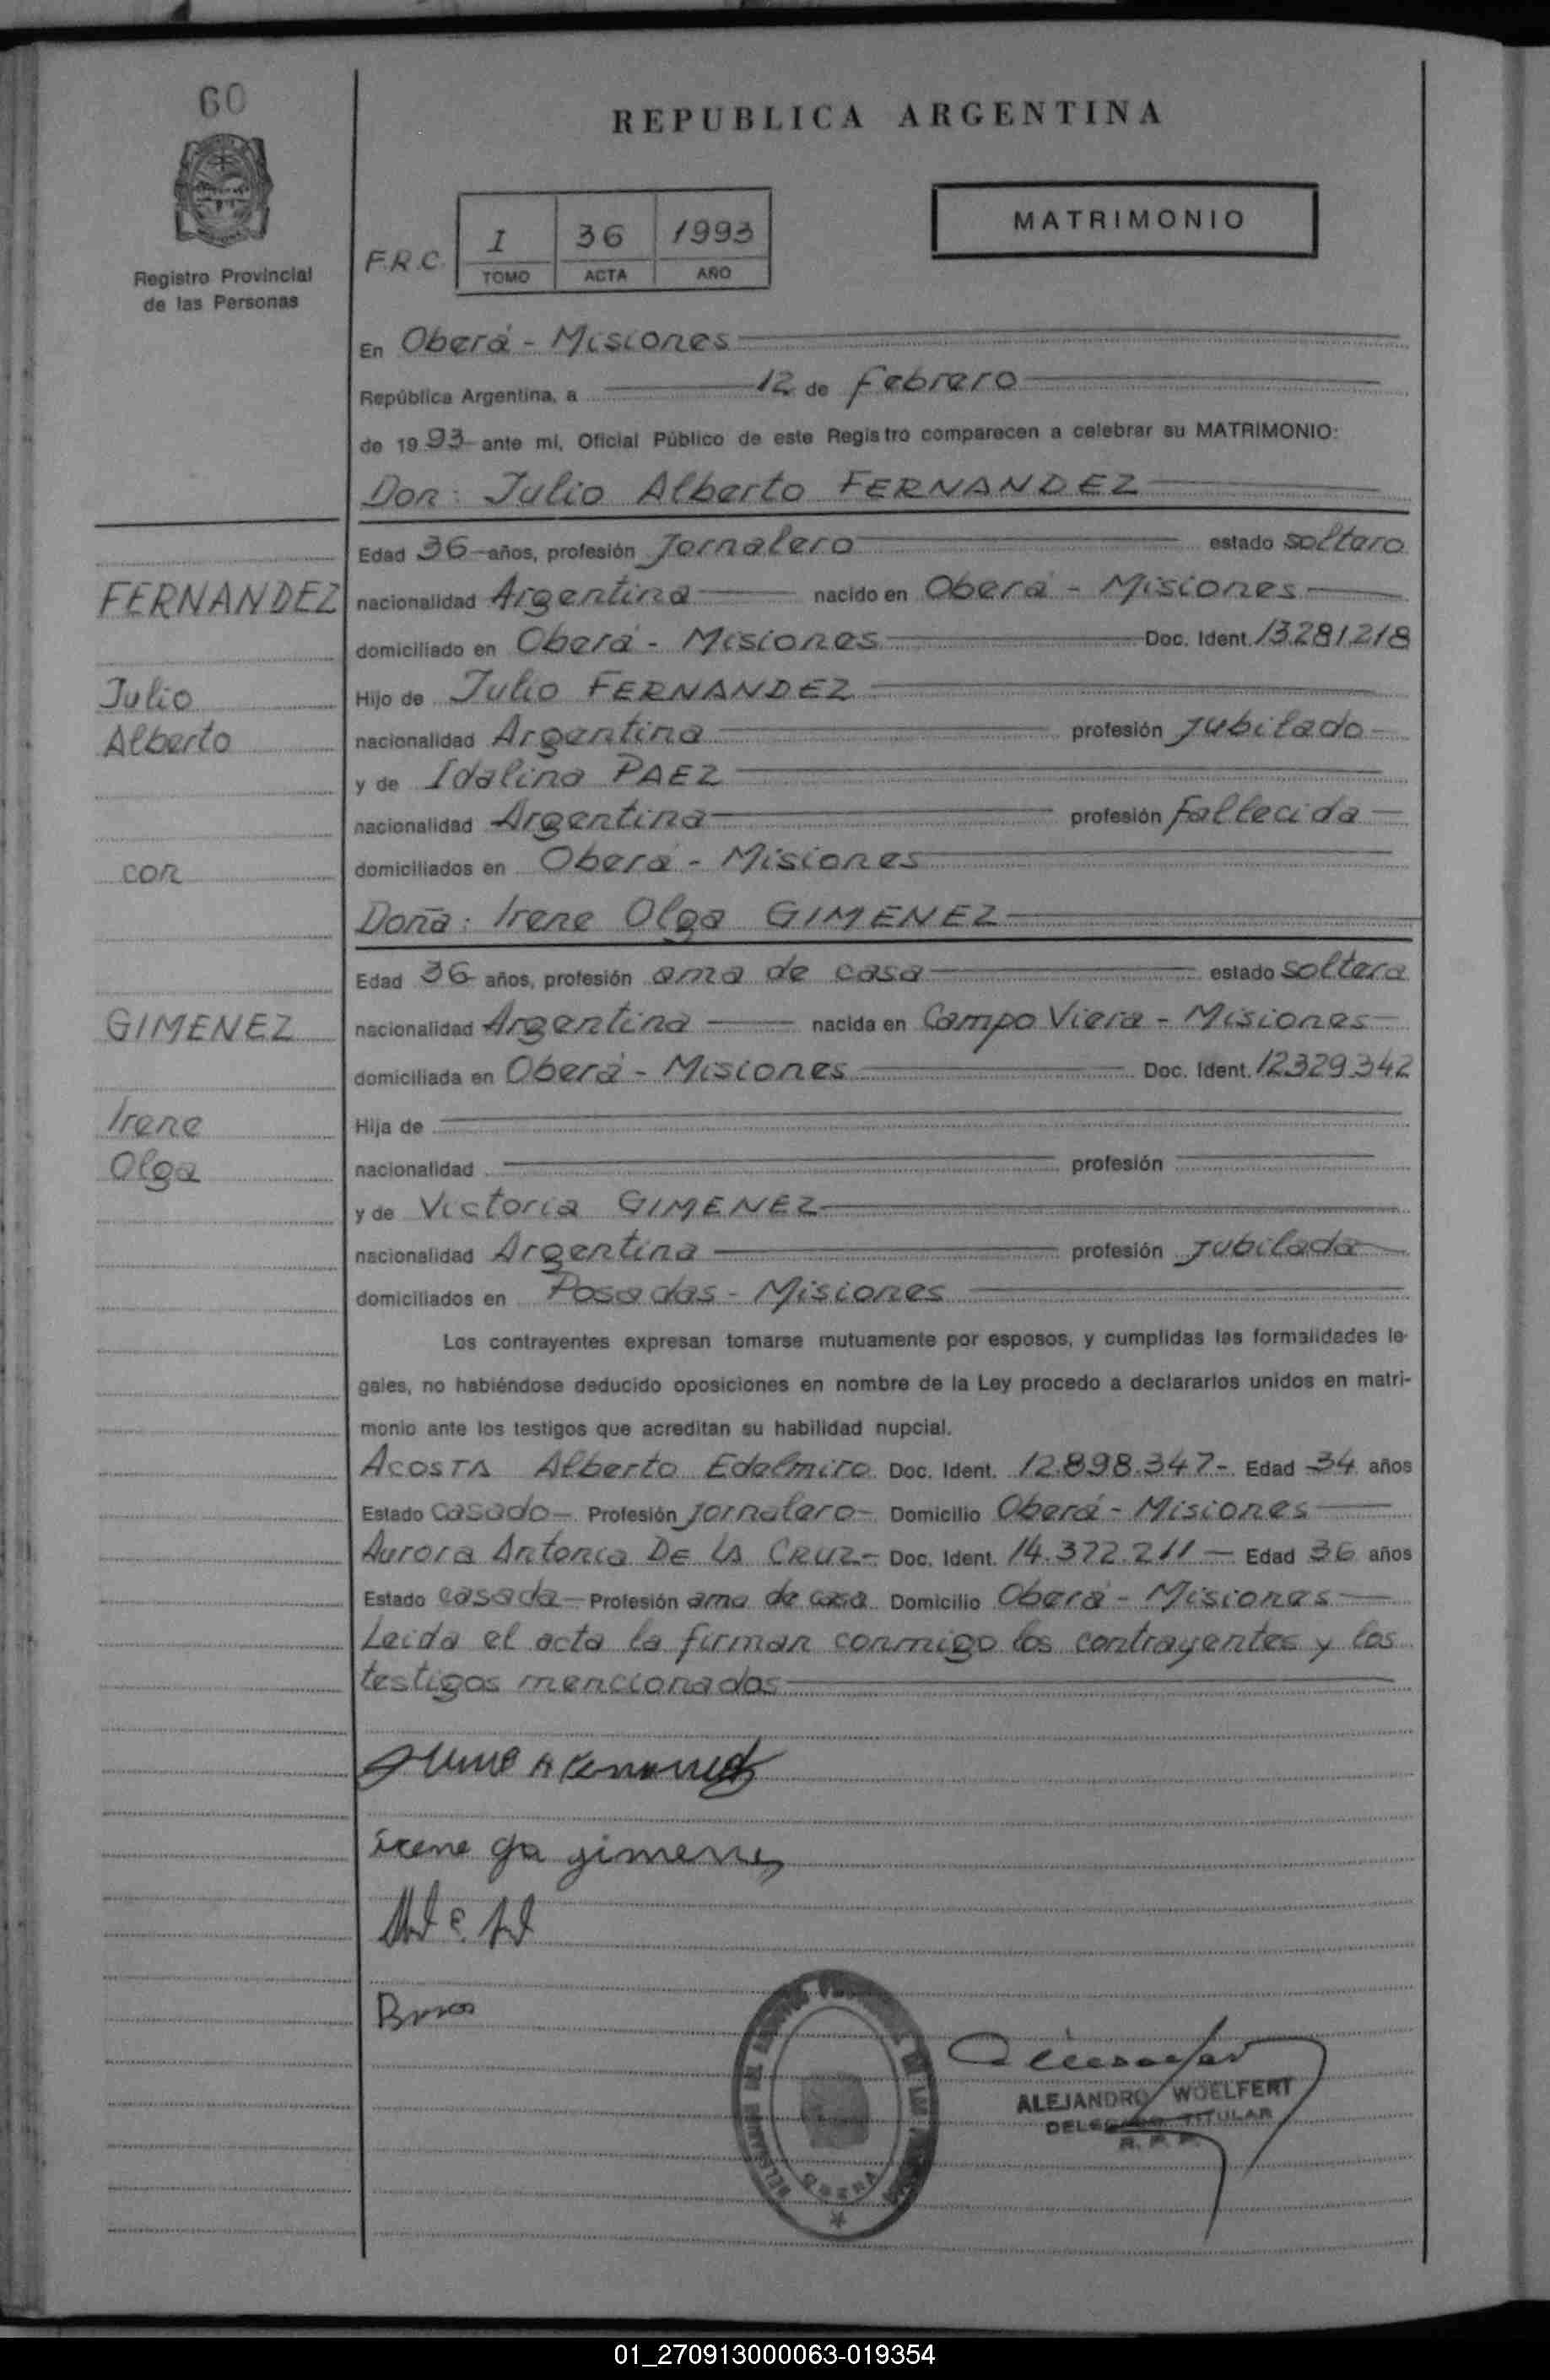 60
REPUBLICA ARGENTINA
Registro Provincial
de las Personas
MATRIMONIO
F.R.C. I 36 1993
TOMO ACTA AÑO
En Oberá - Misiones
República Argentina, a 12 de febrero
de 1993 ante mi, Oficial Público de este Registro comparecen a celebrar su MATRIMONIO:
Don: Julio Alberto FERNANDEZ
Edad 36 años, profesión Jornalero estado soltero
FERNANDEZ
nacionalidad Argentina nacido en Oberá - Misiones
domiciliado en Oberá - Misiones Doc. Ident. 13281218
Julio
Hijo de Julio FERNANDEZ
Alberto
nacionalidad Argentina profesión Jubilado
y de Idalina PAEZ
nacionalidad Argentina profesión Fallecida
con
domiciliados en Oberá - Misiones
Doña: Irene Olga GIMENEZ
Edad 36 años, profesión ama de casa estado soltera
GIMENEZ
nacionalidad Argentina nacida en Campo Viera - Misiones
domiciliada en Oberá - Misiones Doc. Ident. 12329342
Irene
Hija de
Olga
nacionalidad profesión
y de Victoria GIMENEZ
nacionalidad Argentina profesión Jubilada
domiciliados en Posadas - Misiones
Los contrayentes expresan tomarse mutuamente por esposos, y cumplidas las formalidades le-
gales, no habiéndose deducido oposiciones en nombre de la Ley procedo a declararlos unidos en matri-
monio ante los testigos que acreditan su habilidad nupcial.
ACOSTA Alberto Edelmiro Doc. Ident. 12.898.347- Edad 34 años
Estado Casado Profesión Jornalero Domicilio Oberá - Misiones
Aurora Antonia DE LA CRUZ Doc. Ident. 14.372.211 Edad 36 años
Estado casada Profesión ama de casa Domicilio Oberá - Misiones
Leida el acta la firman conmigo los contrayentes y los
testigos mencionados
irene ga gimenez
OBERA
ALEJANDRO WOELFERT
DELEGADO TITULAR
R. P. P.
01_270913000063-019354